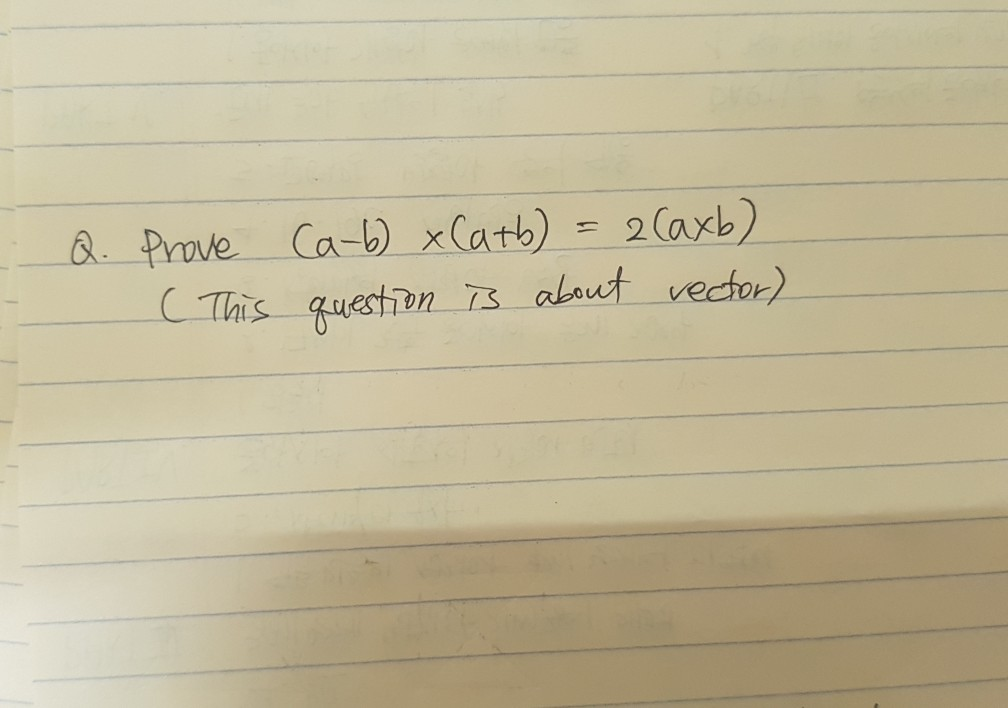 Q. Prove (a-b) x(a+b) = 2(axb)
( This question is about vector)